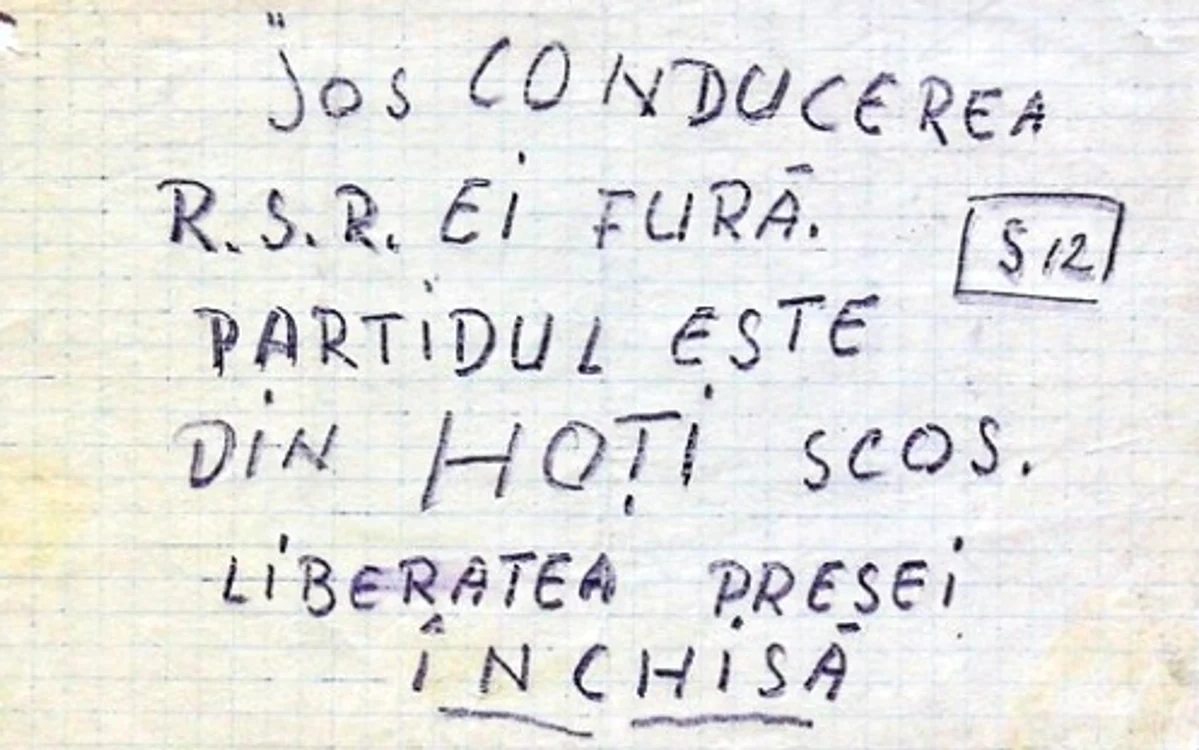 jos CONDUCEREA
R.S.R. Ei FURĂ.
S 12
PARTiDUL ESTE
DiN HOȚi SCOS.
LiBERATEA PRESEi
ÎNCHiSĂ